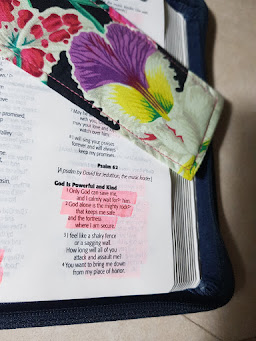 May
with you
your love and
watch over him.
8 I will sing your praises
forever and will always
keep my promises.
Psalm 62
[A psalm by David for Jeduthun, the music leader.]
God Is Powerful and Kind
1 Only God can save me,
and I calmly wait for him.
2 God alone is the mighty rock
that keeps me safe
and the fortress
where I am secure.
3 I feel like a shaky fence
or a sagging wall.
How long will all of you
attack and assault me?
4 You want to bring me down
from my place of honor.